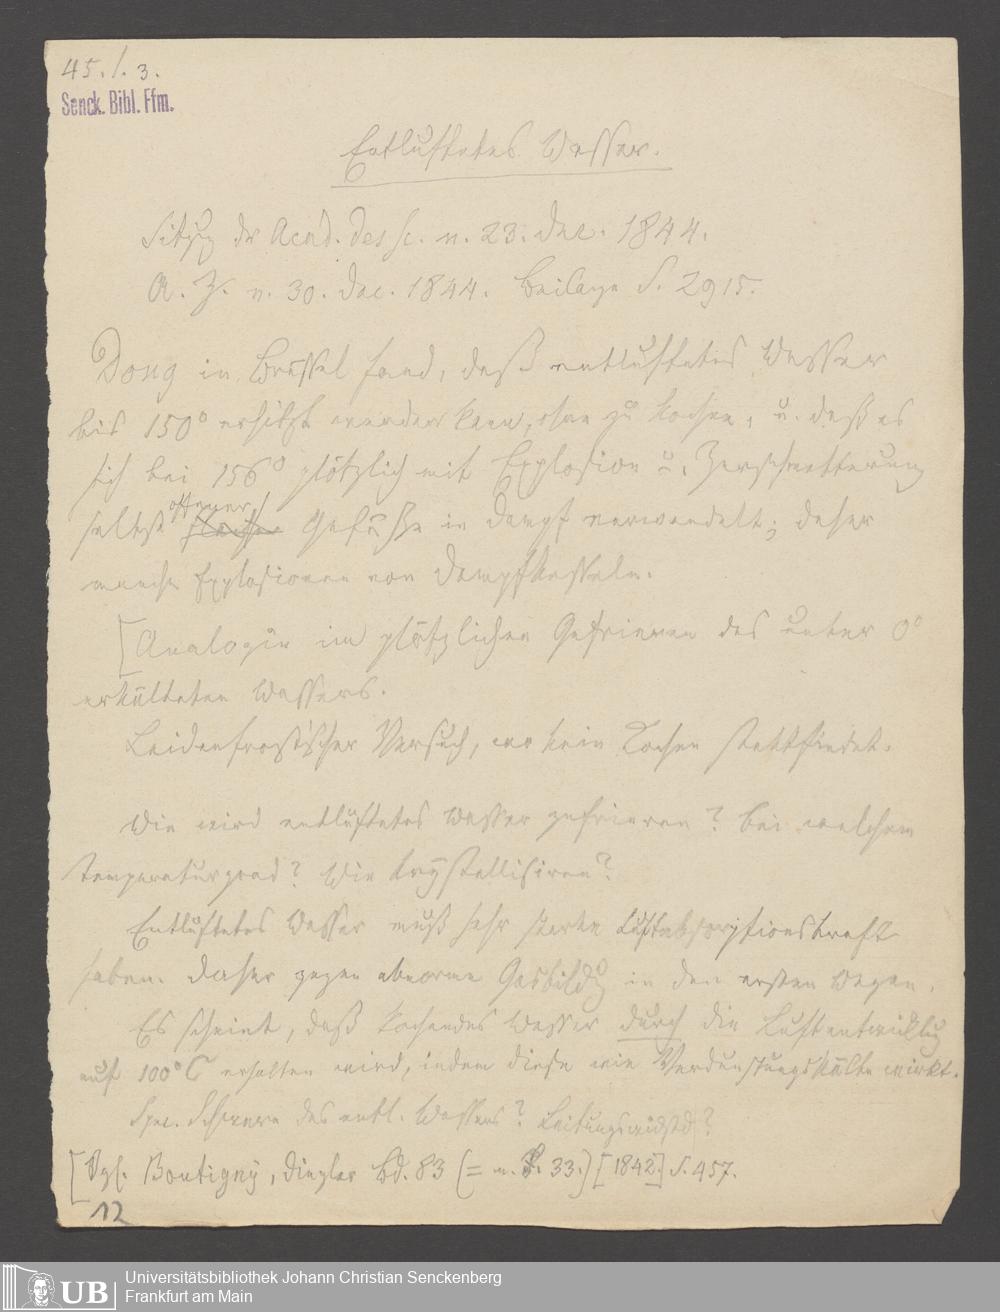 45. /. 3.
Senck. Bibl. Ffm.
Entlüftetes Wasser.
Sitzg der Acad. des sc. v. 23. Dec. 1844.
A. Z. v. 30. Dec. 1844. Beilage S. 2915.
Dony in Brüssel fand, daß entlüftetes Wasser
bis 150° erhitzt werden kann, ohne zu kochen, u. daß es
sich bei 156° plötzlich mit Explosion u. Zerschmetterung
selbst offener Gefäße in Dampf verwandelt; daher
manche Explosionen von Dampfkesseln.
[Analogie im plötzlichen Gefrieren des unter 0°
erkälteten Wassers.
Leidenfrost'scher Versuch, wo kein Kochen stattfindet.
Wie wird entlüftetes Wasser gefrieren? Bei welchem
Temperaturgrad? Wie krystallisiren?
Entlüftetes Wasser muß sehr starke Luftabsorptionskraft
haben. Daher gegen abnorme Gasbildg in den ersten Wegen.
Es scheint, daß kochendes Wasser durch die Luftentwicklug
auf 100° C erhalten wird, indem diese wie Verdunstungskälte wirkt.
Spec. Schwere des entl. Wassers? Leitungswidstd?
[Vgl. Boutigny, Dingler Bd. 83 (= n. F. 33.) [1842] S. 457.
12
UB
Universitätsbibliothek Johann Christian Senckenberg
Frankfurt am Main